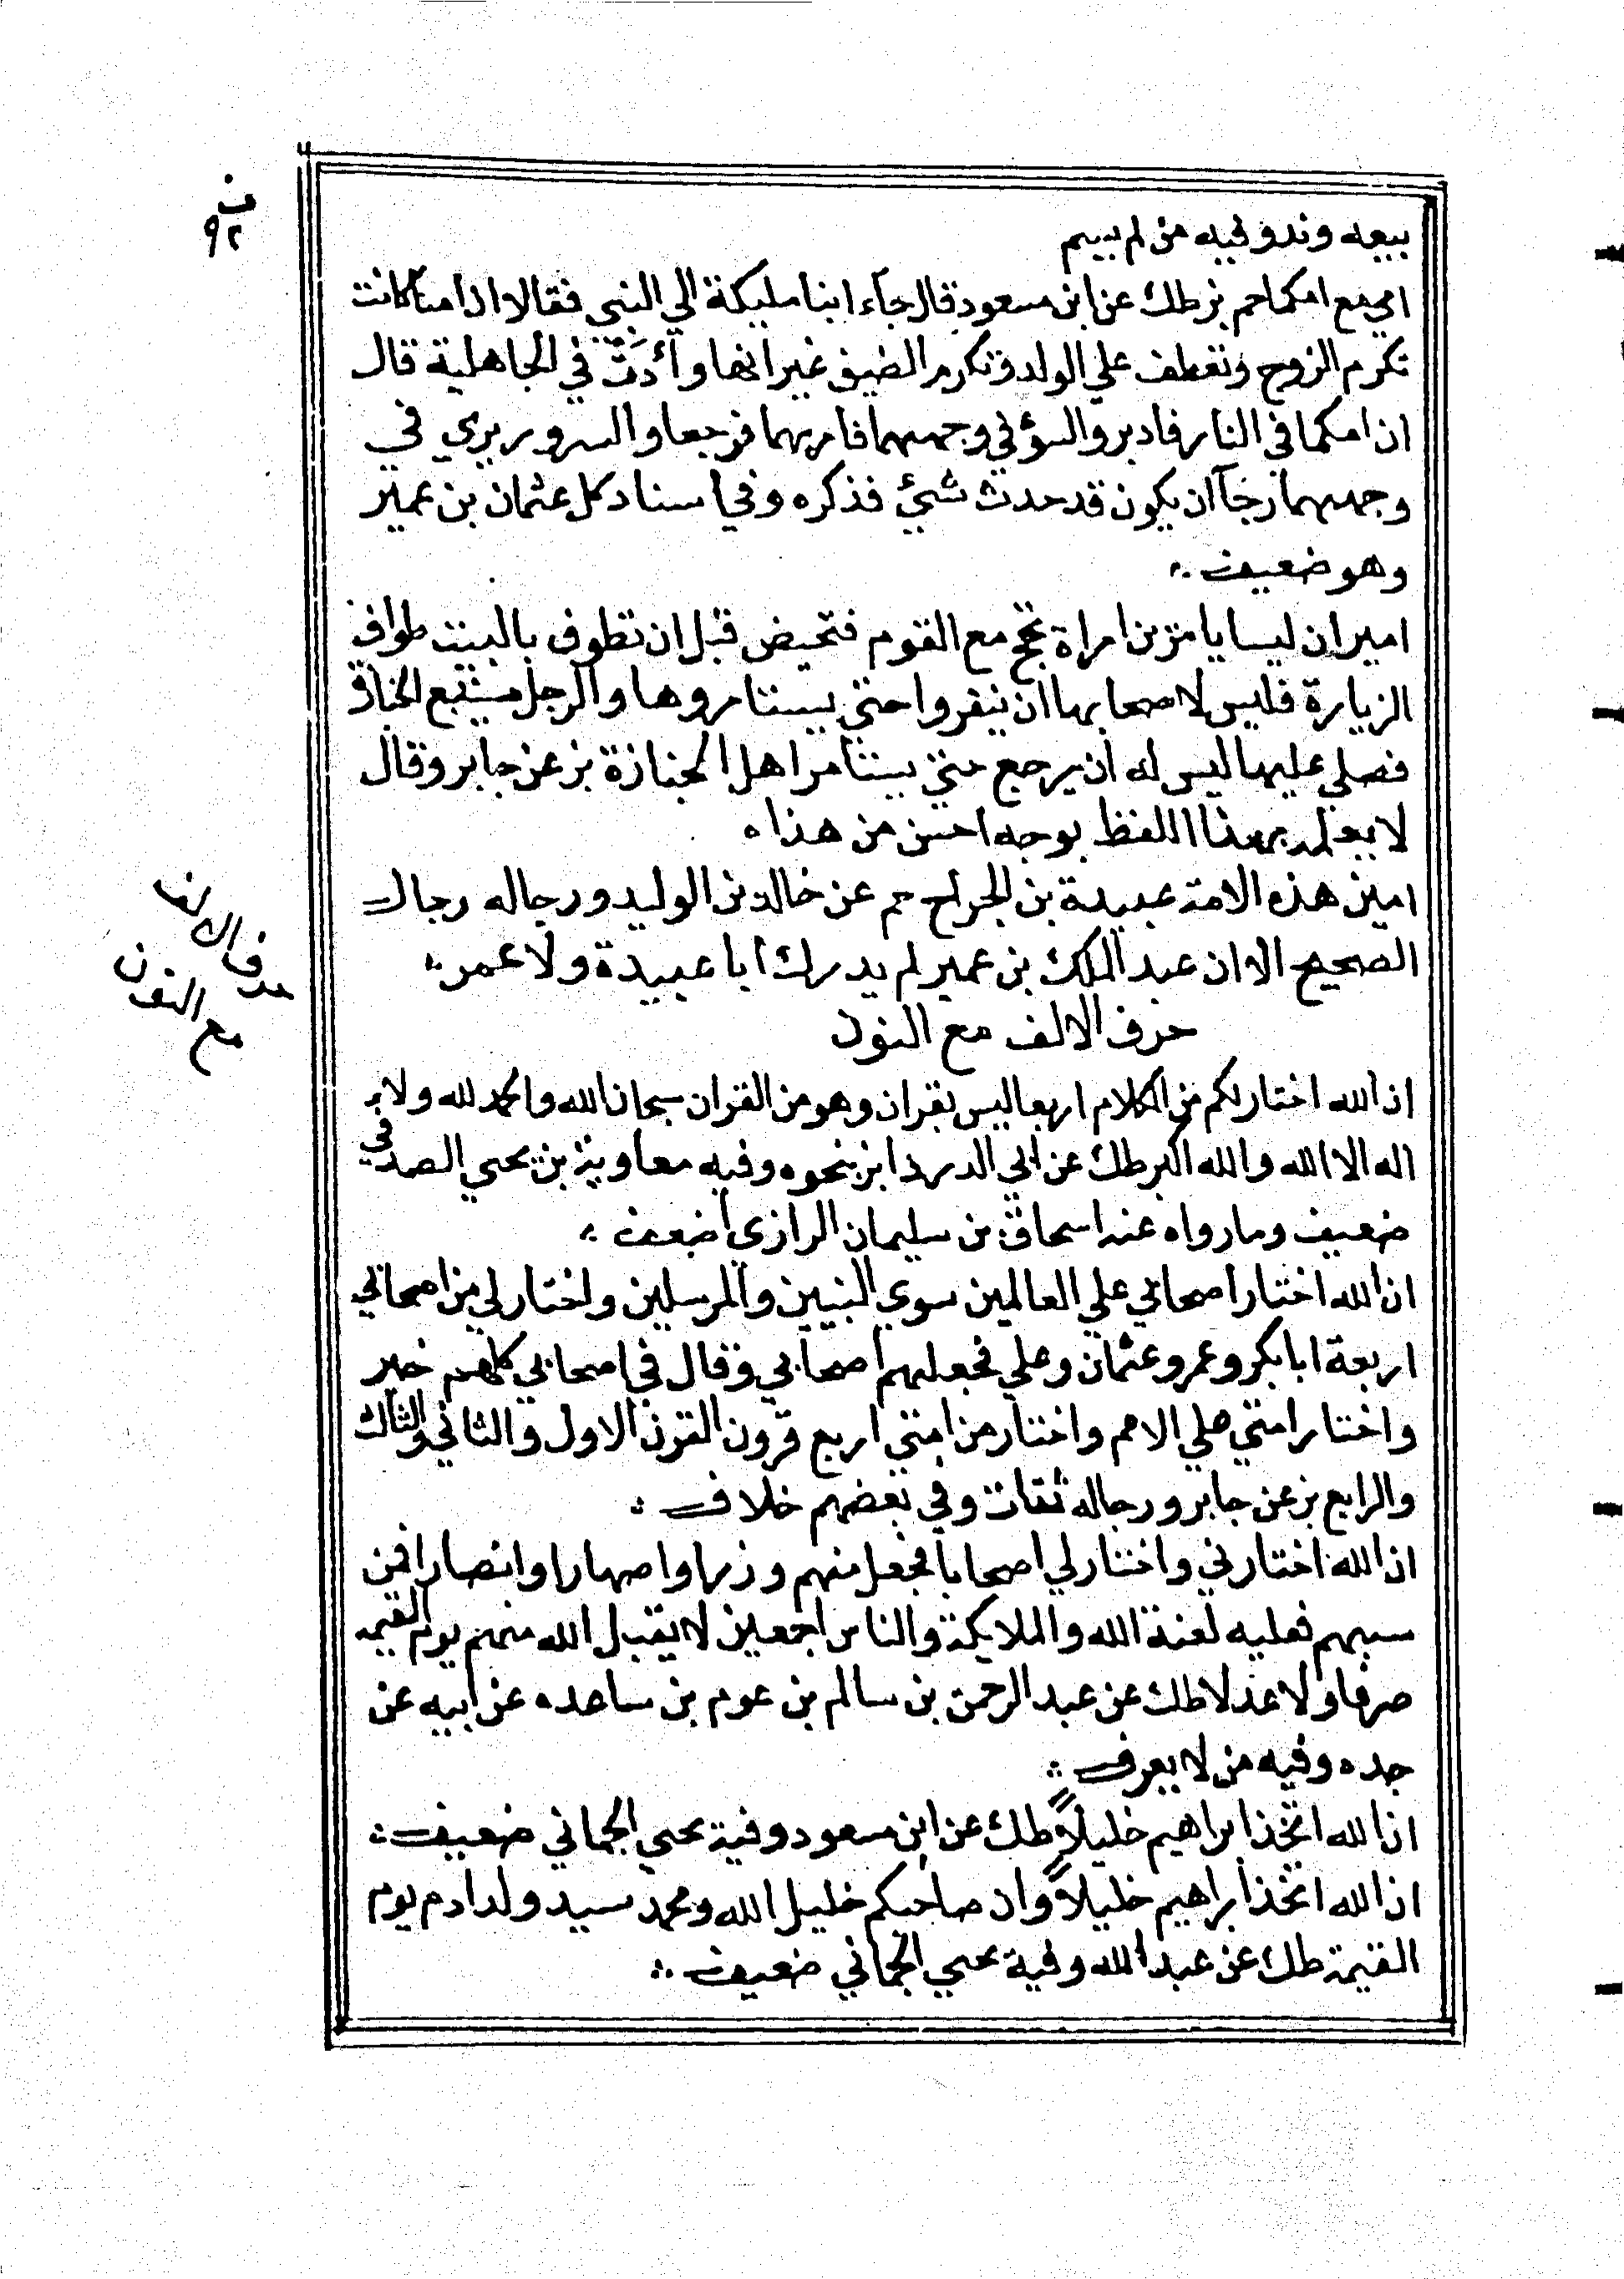 ف
٩٢
بيعه وندو فيه من لم يسم
امي مع امكما حم بز طك عن ابن مسعود قال جآء ابنا مليكة الي النبي فقالا ان امنا كانت
تكرم الزوج وتعطف علي الولد وتكرم الضيف غير انها وأدَتْ في الجاهلية قال
ان امكما في النار فادبر والسؤ في وجههما فامر بهما فرجعا والسرور يري في
وجههما رجآ ان يكون قد حدث شيئ فذكره وفي اسناد كل عثمان بن عمير
وهو ضعيف
اميران ليسا بامرين امراة تحج مع القوم فتحيض قبل ان تطوف بالبيت طواف
الزيارة فليس لاصحابها ان ينفروا حتي يستامروها والرجل متبع الجناز
فصلي عليها ليس له ان يرجع حتي يستامر اهل الجنازة بز عن جابر وقال
لا يعلم بهذا اللفظ بوجه احسن من هذا ه
امين هذه الامة عبيدة بن الجراح حم عن خالد بن الوليد ورجاله رجال
الصحيح الا ان عبد الملك بن عمير لم يدرك ابا عبيدة ولا عمر
حرف الالف مع النون
حرف الالف
مع النون
ان الله اختار لكم من الكلام اربعا ليس بقران وهو من القران سبحان الله والحمد لله ولا
اله الا الله والله اكبر طك عن ابي الدردا بز بنحوه وفيه معاوية بن يحيي الصدفي
ضعيف وما رواه عنه اسحاق بن سليمان الرازي اضعف
ان الله اختار اصحابي علي العالمين سوي النبيين والمرسلين واختار لي من اصحابي
اربعة ابا بكر وعمر وعثمان وعلي فجعلهم اصحابي وقال في اصحابي كلهم خير
واختار امتي علي الامم واختار من امتي اربع قرون القرن الاول والثاني والثالث
والرابع بز عن جابر ورجاله ثقات وفي بعضهم خلاف
ان الله اختارني واختار لي اصحابا فجعل منهم وزرا واصهارا وانصارا فمن
سبهم فعليه لعنة الله والملايكة والناس اجمعين لا يقبل الله منهم يوم القيمه
صرفا ولا عدلا طك عن عبد الرحمن بن سالم بن عوم بن ساعده عن ابيه عن
جده وفيه من لا يعرف
ان الله اتخذ ابراهيم خليلاً طك عن ابن مسعود وفية يحيي الحماني ضعيف
ان الله اتخذ ابراهيم خليلاً وان صاحبكم خليل الله ومحمد سيد ولد ادم يوم
القيمة طك عن عبد الله وفية يحيي الحماني ضعيف